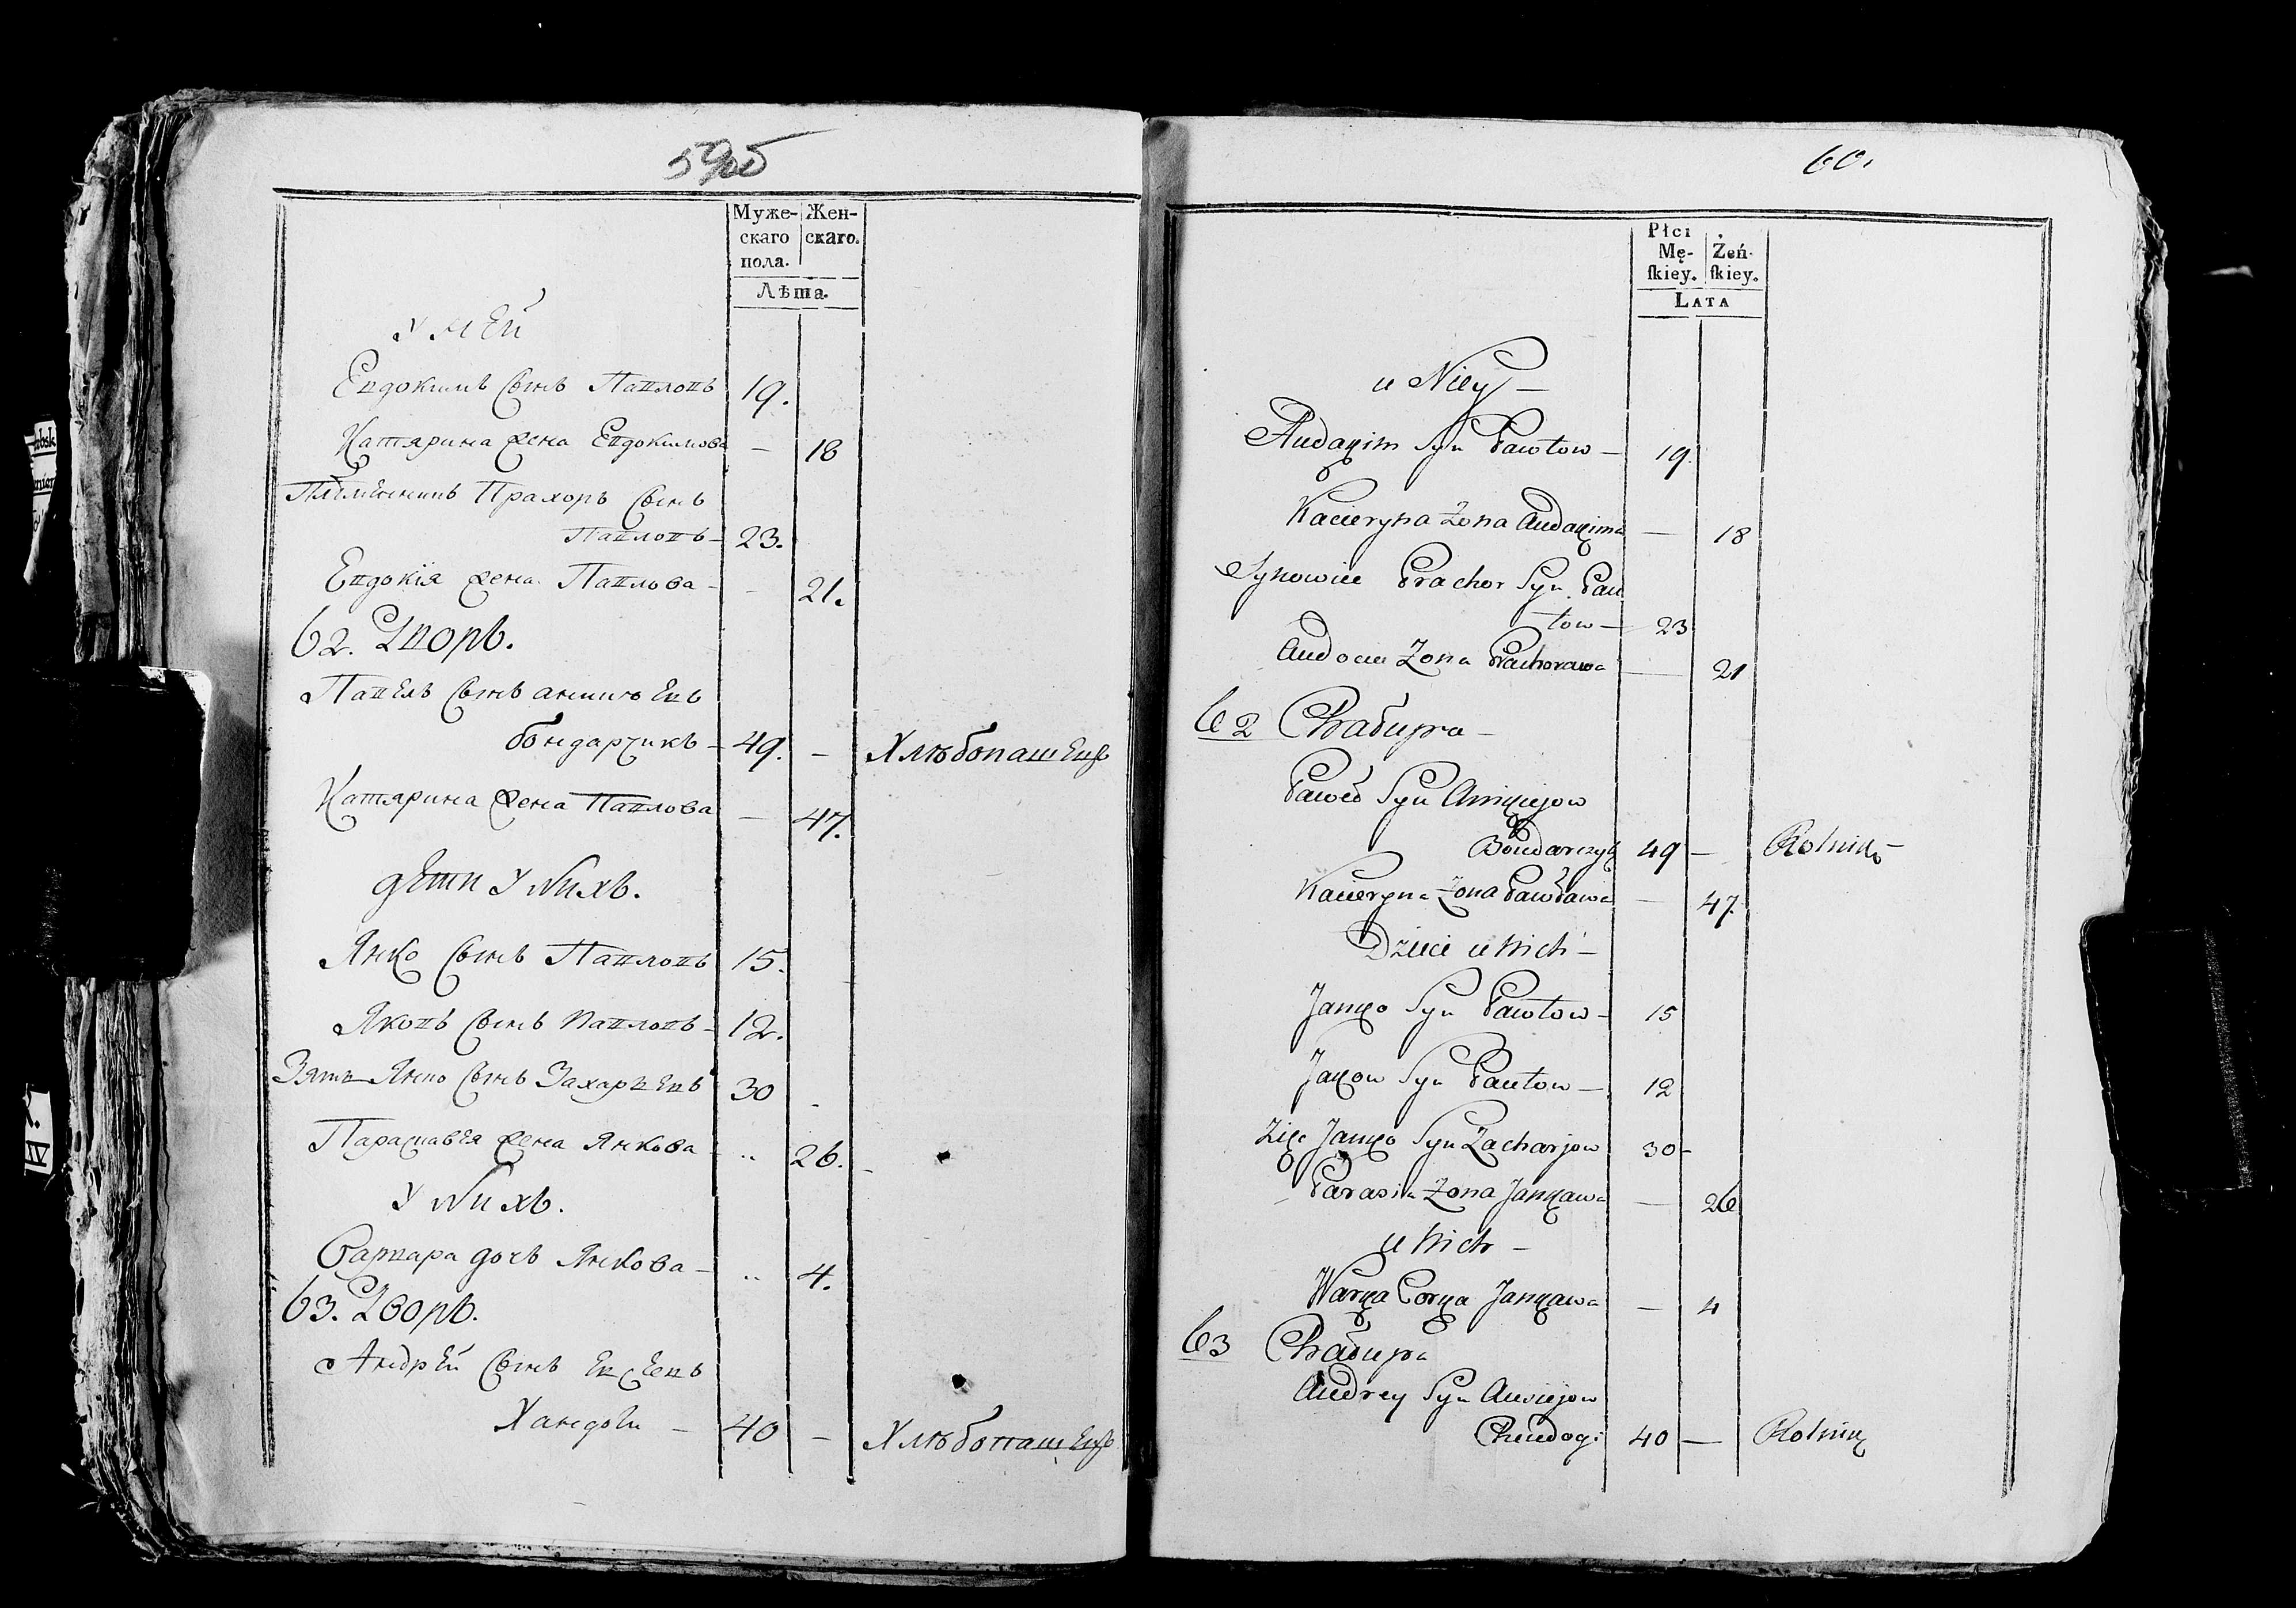 59об
Муже- Жен-
скаго скаго.
пола.
Лѣта.
У Ней
Евдокимъ Сынъ Павловъ 19.
Катярина жена Евдокимова — 18
Племенникъ Прахоръ Сынъ
Павловъ — 23.
Евдокія жена Павлова — - 21.
62. Дворъ.
Павелъ Сынъ аникѣевъ
бондарчикъ — 49. — Хлѣбопашецъ
Катярина жена Павлова — 47.
дети У Нихъ.
Янко Сынъ Павловъ 15.
Яковъ Сынъ Павловъ — 12.
Зять Янко Сынъ Захарьевъ 30 -
Парасковея жена Янкова .. 26.
У Нихъ.
Варвара дочь Янкова — .. 4.
63. Дворъ.
Андрей Сынъ Евсеевъ
Хандоги — 40 — Хлѣбопашецъ
60.
Płci
Mę- Żeń-
ſkiey. ſkiey.
LATA
u Niey —
Audakim Syn Pawłow — 19
Kacieryna Zona Audakima — 18
Synowiec Prachor Syn Paw
łow — 23
Audocia Zona Prachorawa — 21
62 Chałupa —
Paweł Syn Anikiejow
Bondarczyk 49 — Rolnik —
Kacieryna Zona Pawława — 47.
Dzieci u nich —
Janko Syn Pawłow — 15
Jakow Syn Pawłow — 12
Zięć Janko Syn Zacharjow 30 -
Parasia Zona Jankawa — 26
u nich —
Warka Corka Jankawa — 4
63 Chałupa
Audrey Syn Ausiejow
Chandogi 40 — Rolnik